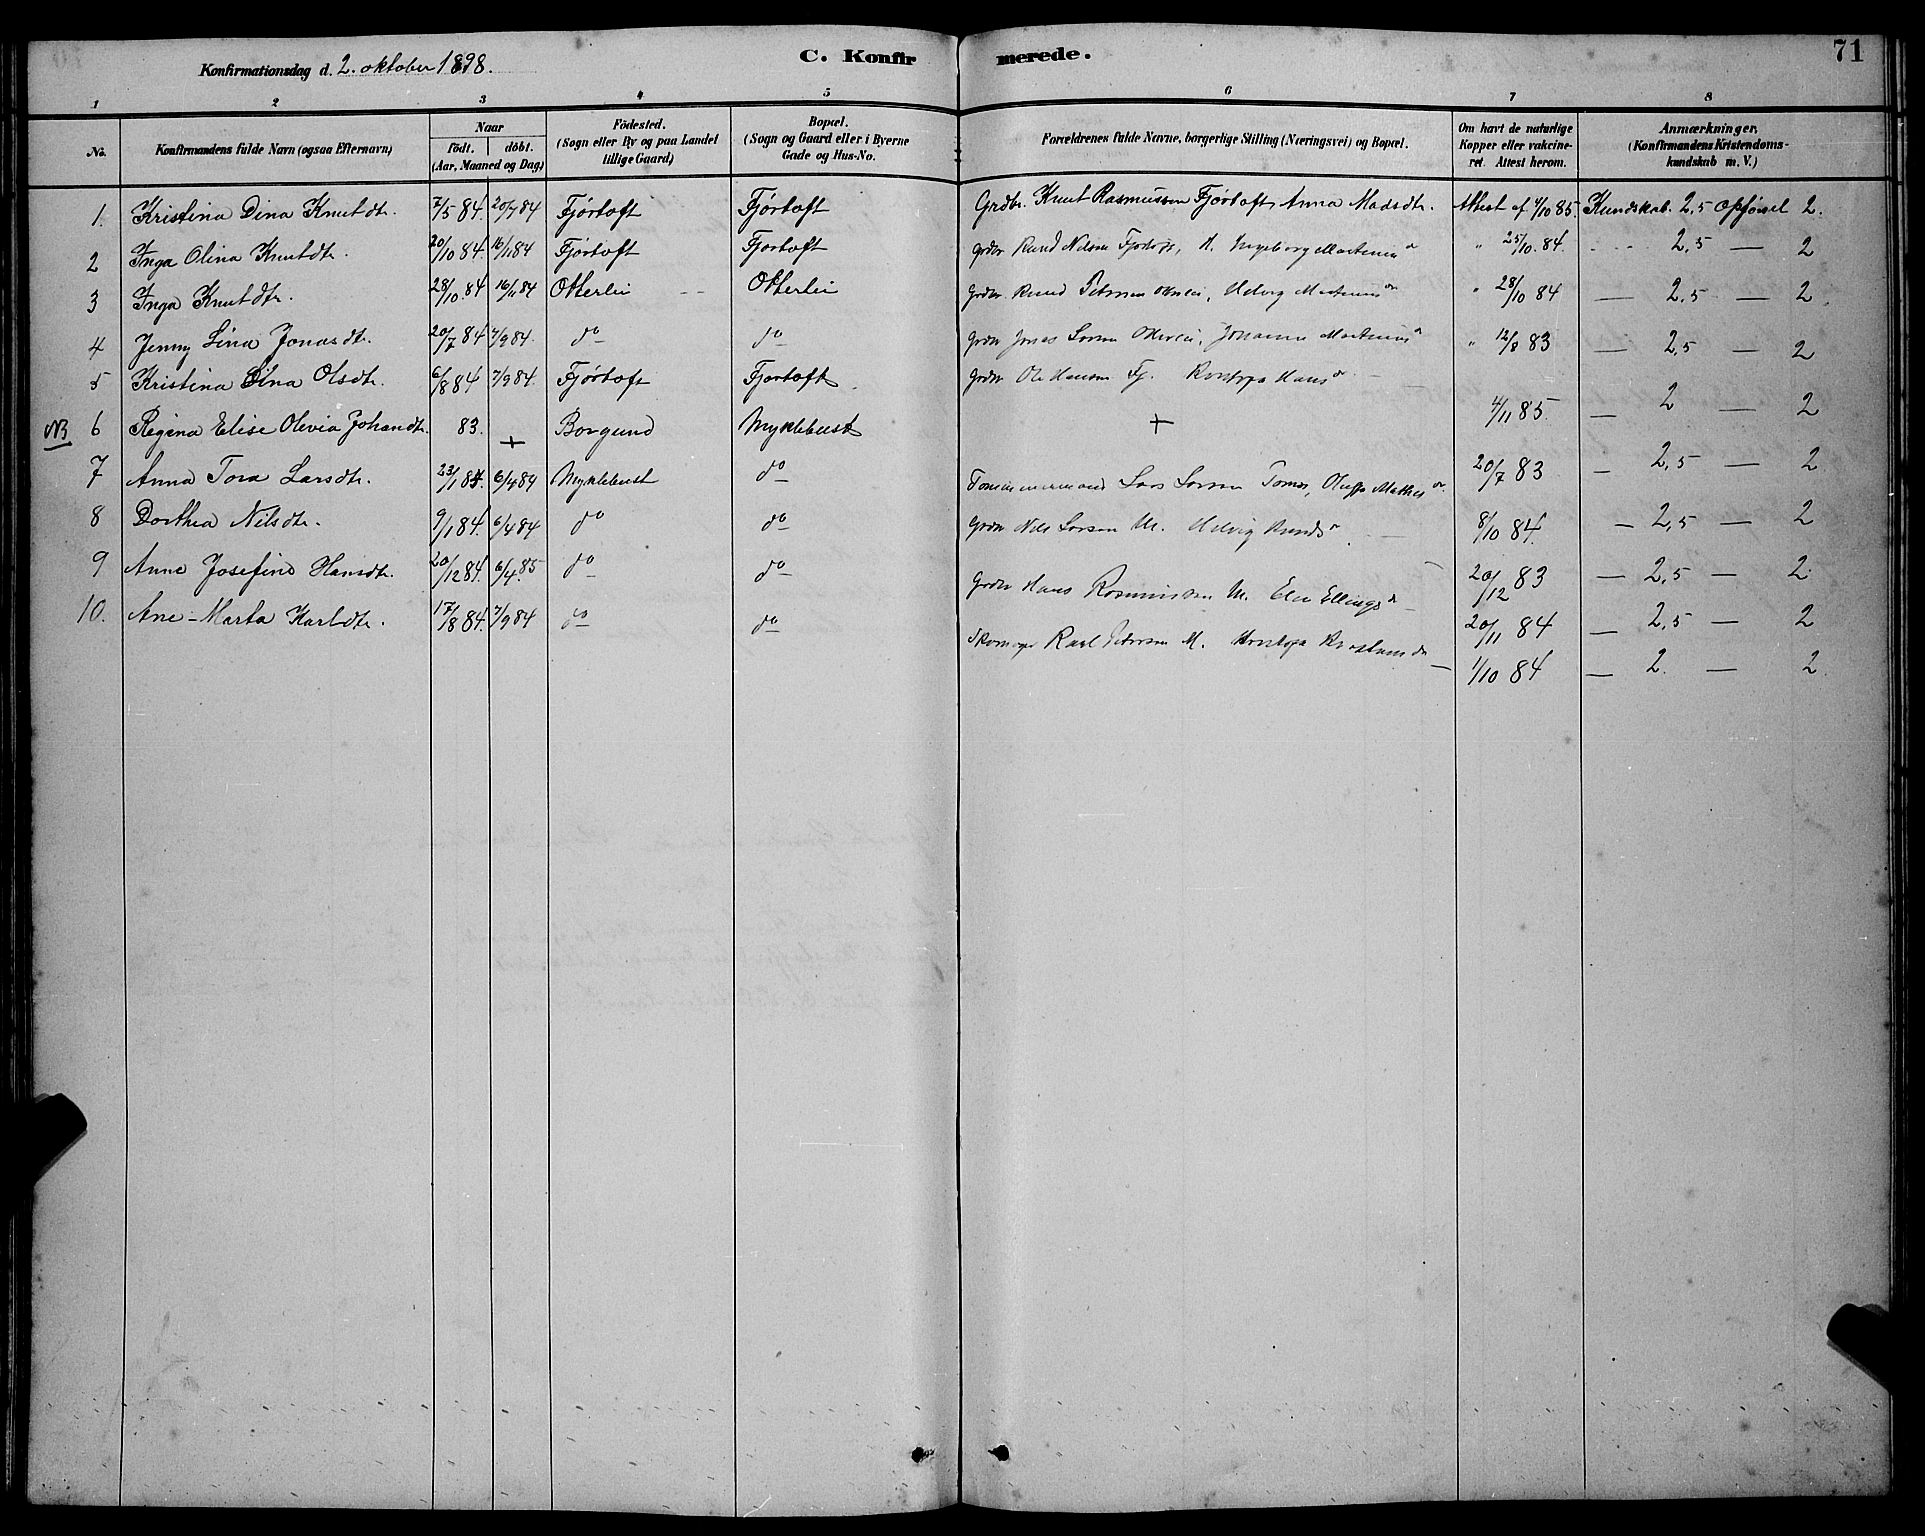 Konfirmationsdag d. 2. oktober 1898.
C. Konfirmerede.
71
1 2 3 4 5 6 7 8
No.
Konfirmandens fulde Navn (ogsaa Efternavn)
Naar
födt. döbt.
(Aar, Maaned og Dag)
Födested.
(Sogn eller By og paa Landet
tillige Gaard)
Bopæl.
(Sogn og Gaard eller i Byerne
Gade og Hus-No.
Forældrenes fulde Navne, borgerlige Stilling (Næringsvei) og Bopæl.
Om havt de naturlige
Kopper eller vakcine-
ret. Attest herom.
Anmærkninger.
(Konfirmandens Kristendoms-
kundskab m. V.)
1. Kristina Dina Knutdtr. 7/5 84. 20/7 84 Fjørtoft Fjørtoft Grdbr. Knut Rasmussen Fjørtoft, Anna Madsdtr. Attest af 4/10 85. Kundskab. 2,5 opførsel 2.
2 Inga Olina Knutdtr. 20/10 84. 16/11 84 Fjørtoft Fjørtoft 25/10. 84. 2,5 — 2
3 Inga Knutdtr. 28/10 84 16/11 84 Otterlei Otterlei 28/10 84 — 2,5 — 2
4 Jenny Lina Jonasdtr. 20/7 84 7/9 84. do do 12/8 83 — 2,5 — 2
5 Kristina Lina Olsdtr. 6/8 84 7/9 84. Fjørtoft Fjørtoft Ole Hansen Fj. 4/11 85. — 2 — 2
NB 6 Regina Elise Olivia Johandtr. 83. + Borgund Myklebust +
7 Anna Tora Larsdtr. 23/1 84. 6/4 84 Myklebust do Tømmermand Lars Larsen 20/7 83 — 2,5 — 2
8 Dorthea Nilsdtr. 9/1 84. 6/4 84 do do Nils Larsen M. 8/10 84. — 2,5 — 2
9 Anne Josefine Hansdtr. 20/12 84. 6/4. 85 do do Hans Rasmussen M. Ellingsdr 20/12 83 — 2,5 — 2
10. Ane-Marta Karldtr. 17/8 84. 7/9 84 do do Karl Petersen M. 20/11 84 — 2,5 — 2
1/10 84 — 2. — 2.